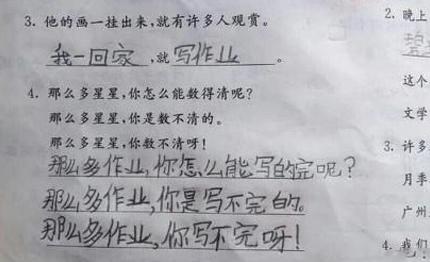 3. 他的画一挂出来,就有许多人观赏。
我一回家,就写作业。
4. 那么多星星,你怎么能数得清呢?
那么多星星,你是数不清的。
那么多星星,你数不清呀!
那么多作业,你怎么能写的完呢?
那么多作业,你是写不完的。
那么多作业,你写不完呀!
2. 晚上
这个
文学
3. 许多
月季
广州
4. 我们